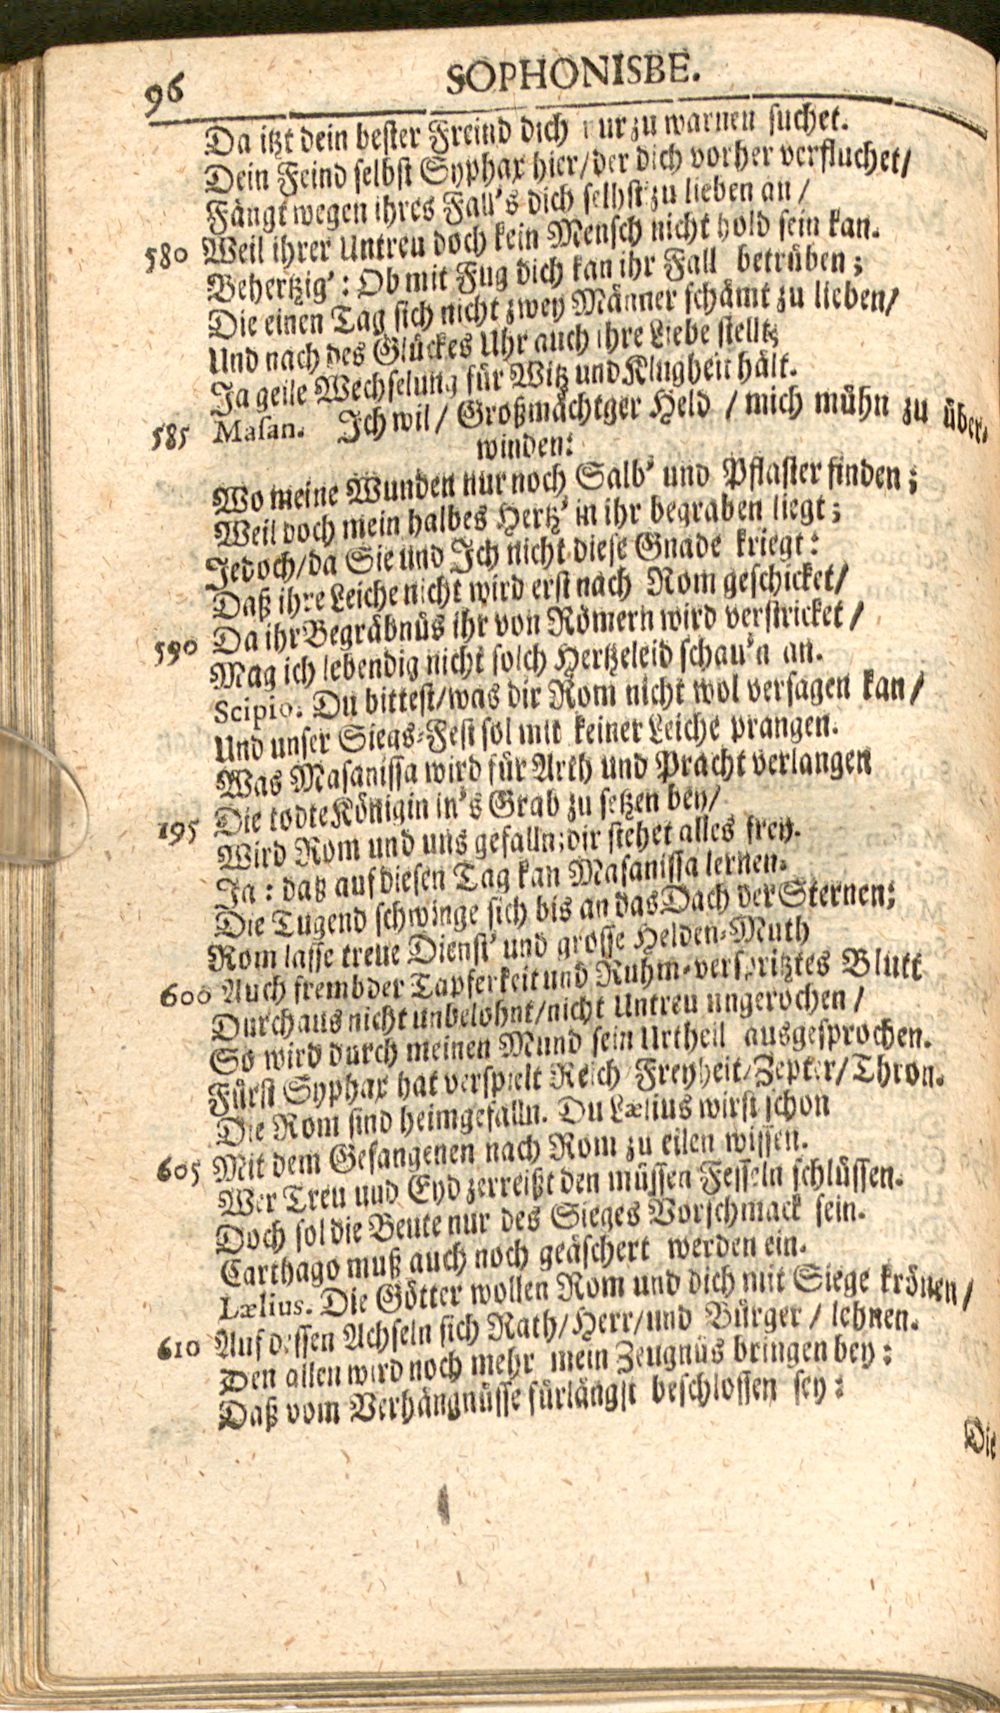 96 SOPHONISBE.
Da itzt dein bester Freind dich nur zu warnen suchet.
Dein Feind selbst Syphax hier/der dich vorher verfluchet/
Fängt wegen ihres Fall's dich selbst zu lieben an/
580 Weil ihrer Untreu doch kein Mensch nicht hold sein kan.
Behertzig': Ob mit Fug dich kan ihr Fall betrüben;
Die einen Tag sich nicht zwey Männer schämt zu lieben/
Und nach des Glückes Uhr auch ihre Liebe stellt;
Ja geile Wechselung für Witz und Klugheit hält.
585 Masan. Ich wil/ Großmächtger Held / mich mühn zu über-
winden:
Wo meine Wunden nur noch Salb' und Pflaster finden;
Weil doch mein halbes Hertz' in ihr begraben liegt;
Jedoch/da Sie und Ich nicht diese Gnade kriegt:
Daß ihre Leiche nicht wird erst nach Rom geschicket/
590 Da ihr Begräbnüs ihr von Römern wird verstricket/
Mag ich lebendig nicht solch Hertzeleid schau'n an.
Scipio. Du bittest/was dir Rom nicht wol versagen kan/
Und unser Siegs-Fest sol mit keiner Leiche prangen.
Was Masanissa wird für Arth und Pracht verlangen
195 Die todte Königin in's Grab zu setzen bey/
Wird Rom und uns gefalln; dir stehet alles frey.
Ja: daß auf diesen Tag kan Masanissa lernen.
Die Tugend schwinge sich bis an das Dach der Sternen;
Rom lasse treue Dienst' und grosse Helden-Muth
600 Auch frembder Tapferkeit und Ruhm-verspritztes Blutt
Durchaus nicht unbelohnt/nicht Untreu ungerochen/
So wird durch meinen Mund sein Urtheil ausgesprochen.
Fürst Syphax hat verspielt Reich/Freyheit/Zepter/Thron.
Die Rom sind heimgefalln. Du Lælius wirst schon
605 Mit dem Gefangenen nach Rom zu eilen wissen.
Wer Treu und Eyd zerreißt den müssen Fesseln schlüssen.
Doch sol die Beute nur des Sieges Vorschmack sein.
Carthago muß auch noch geäschert werden ein.
Lælius. Die Götter wollen Rom und dich mit Siege krönen/
610 Auf dessen Achseln sich Rath/Herr/und Bürger / lehnen.
Den allen wird noch mehr mein Zeugnüs bringen bey:
Daß vom Verhängnüsse fürlängst beschlossen sey:
Die